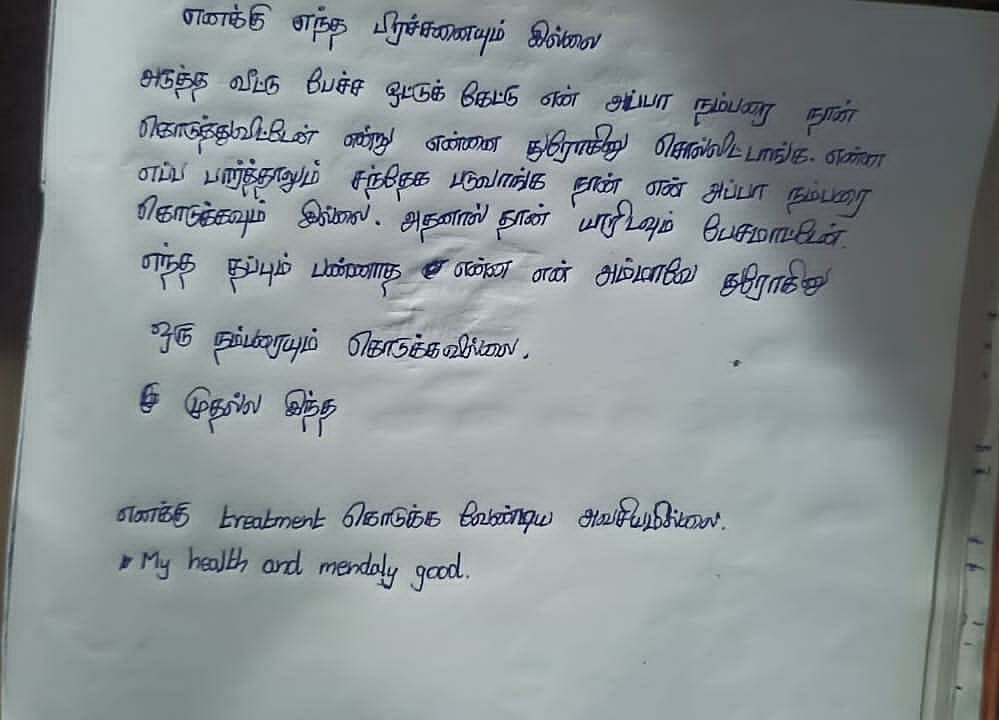 எனக்கு எந்த பிரச்சனையும் இல்லை
அடுத்த வீட்டு பேச்ச ஒட்டுக் கேட்டு என் அப்பா நம்பரை நான்
கொடுத்துவிட்டேன் என்று என்னை துரோகினு சொல்லிட்டாங்க. என்ன
எப்ப பார்த்தாலும் சந்தேக படுவாங்க நான் என் அப்பா நம்பரை
கொடுக்கவும் இல்லை. அதனால் நான் யாரிடவும் பேசமாட்டேன்.
எந்த தப்பும் பண்ணாத என்ன என் அம்மாவே துரோகினு
ஒரு நம்பரையும் கொடுக்கவில்லை.
முதல்ல இந்த
எனக்கு treatment கொடுக்க வேண்டிய அவசியமில்லை.
My health and mendaly good.